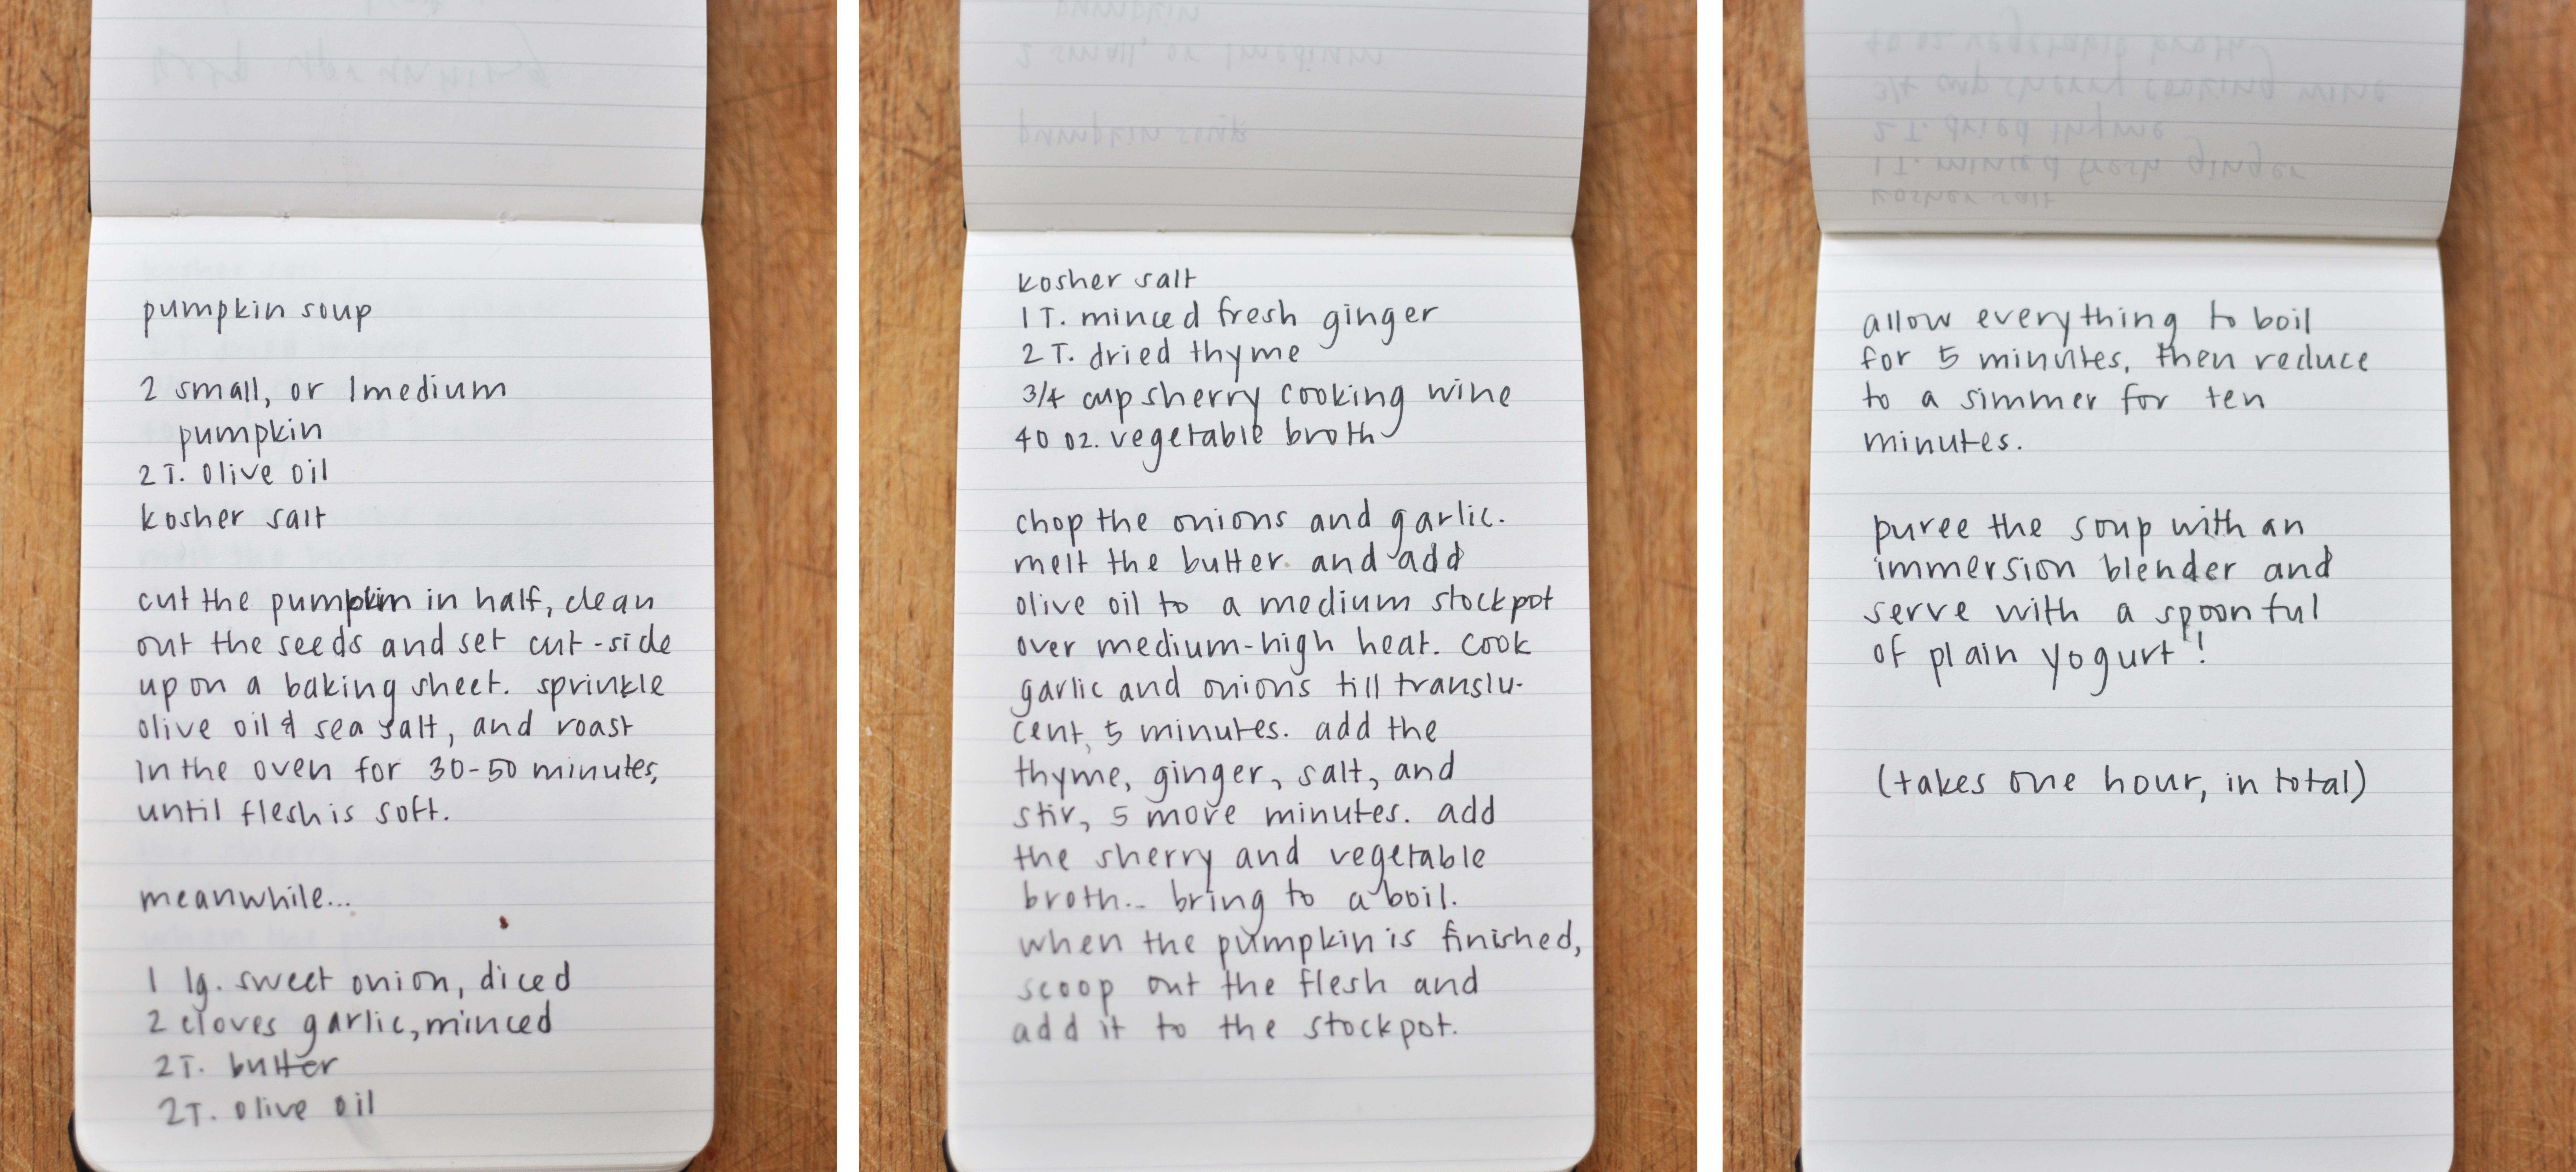 pumpkin soup
2 small, or 1 medium
pumpkin
2 T. olive oil
kosher salt
cut the pumpkin in half, clean
out the seeds and set cut-side
up on a baking sheet. sprinkle
olive oil & sea salt, and roast
in the oven for 30-50 minutes,
until flesh is soft.
meanwhile...
1 lg. sweet onion, diced
2 cloves garlic, minced
2T. butter
2T. olive oil
kosher salt
1 T. minced fresh ginger
2 T. dried thyme
3/4 cup sherry cooking wine
40 oz. vegetable broth
chop the onions and garlic.
melt the butter and add
olive oil to a medium stockpot
over medium-high heat. cook
garlic and onions till translu-
cent, 5 minutes. add the
thyme, ginger, salt, and
stir, 5 more minutes. add
the sherry and vegetable
broth... bring to a boil.
when the pumpkin is finished,
scoop out the flesh and
add it to the stockpot.
allow everything to boil
for 5 minutes, then reduce
to a simmer for ten
minutes.
puree the soup with an
immersion blender and
serve with a spoonful
of plain yogurt!
(takes one hour, in total)